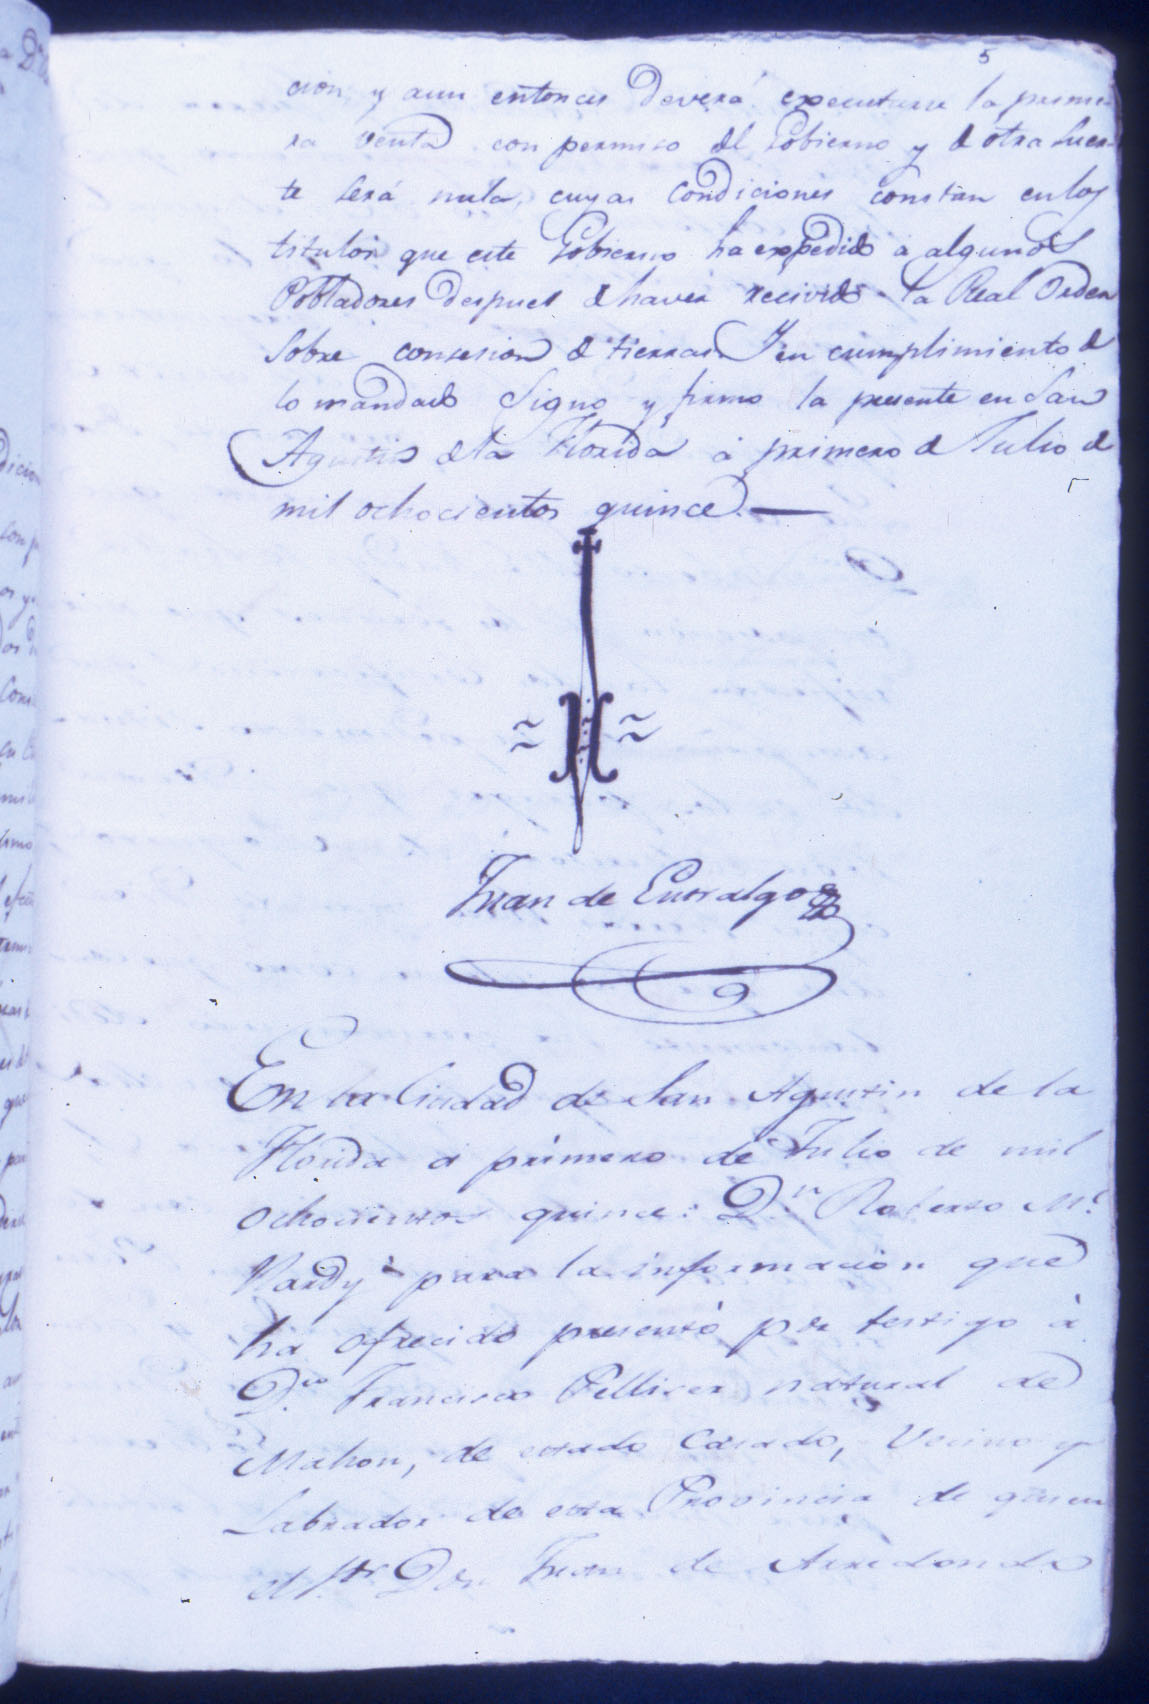 5
cion, y aun entonces deverá executarse la prime-
ra venta con permiso del Gobierno y de otra suer-
te será nula, cuyas condiciones constan en los
titulos que este Gobierno ha expedido a algunos
Pobladores despues de haver recivido la Real Orden
sobre consesion de tierras. Y en cumplimiento de
lo mandado signo y firmo la presente en San
Agustin de la Florida a primero de Julio de
mil ochocientos quince.
Juan de Entralgo
En la Ciudad de San Agustin de la
Florida a primero de Julio de mil
ochocientos quince: Dn. Roberto Mc.
Hardy para la informacion que
ha ofrecido presentó por testigo à
Dn. Francisco Pellicer natural de
Mahon, de estado Casado, Vecino y
Labrador de esta Provincia de quien
el Sor Don Juan de Arredondo